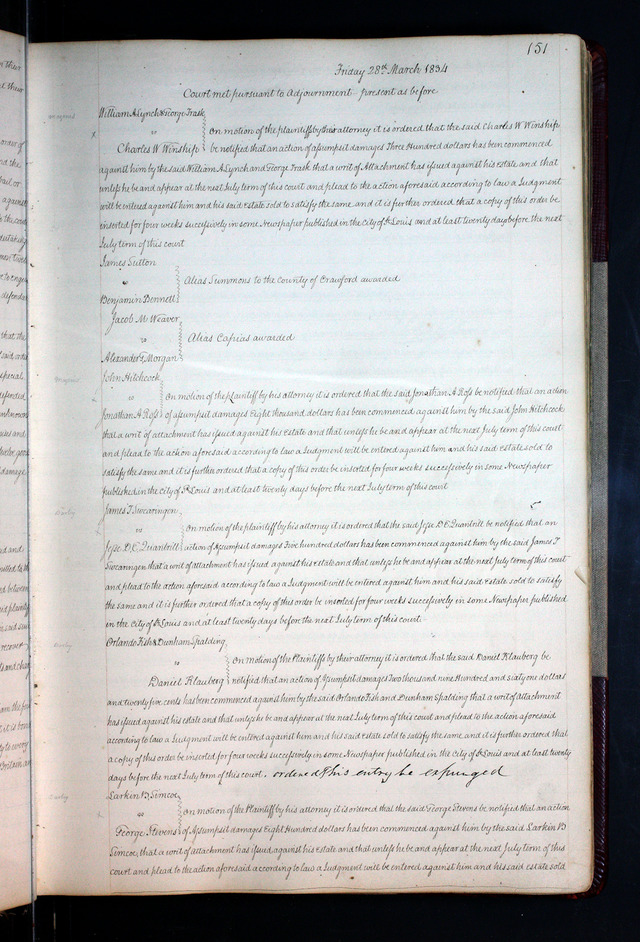 151
Friday 28th March 1834
Court met pursuant to Adjournment present as before
William A Lynch & George Trask
vs
on motion of the plaintiffs by their attorney it is ordered that the said Charles W Winship
Charles W Winship
be notified that an action of assumpsit damages Three Hundred dollars has been commenced
against him by the said William A Lynch and George Trask that a writ of Attachment has issued against his estate and that
unless he be and appear at the next July term of this court and plead to the action aforesaid according to law a Judgment
will be entered against him and his said Estate sold to satisfy the same and it is further ordered that a copy of this order be
inserted for four weeks successively in some Newspaper published in the City of St Louis and at least twenty days before the next
July term of this court
James Sutton
vs
Alias Summons to the County of Crawford awarded
Benjamin Dennett
Jacob M Weaver
vs
Alias Capias awarded
Alexander G Morgan
John Hitchcock
vs
on motion of the plaintiff by his attorney it is ordered that the said Jonathan A Ross be notified that an action
Jonathan A Ross
of assumpsit damages Eight thousand dollars has been commenced against him by the said John Hitchcock
that a writ of attachment has issued against his Estate and that unless he be and appear at the next July term of this court
and plead to the action aforesaid according to law a Judgment will be entered against him and his said Estate sold to
satisfy the same and it is further ordered that a copy of this order be inserted for four weeks successively in some Newspaper
published in the City of St Louis and at least twenty days before the next July term of this court
James T Swearingen
vs
on motion of the plaintiff by his attorney it is ordered that the said Jesse D E Quantrill be notified that an
Jesse D. E. Quantrill
action of Assumpsit damages Five hundred dollars has been commenced against him by the said James T
Swearingen that a writ of attachment has issued against his estate and that unless he be and appear at the next July term of this court
and plead to the action aforesaid according to law a Judgment will be entered against him and his said Estate sold to satisfy
the same and it is further ordered that a copy of this order be inserted for four weeks successively in some Newspaper published
in the City of St Louis and at least twenty days before the next July term of this court.
Orlando Fish & Dunham Spalding
vs
on motion of the Plaintiffs by their attorney it is ordered that the said Daniel Klauberg be
Daniel Klauberg
notified that an action of Assumpsit damages Two thousand nine Hundred and sixty one dollars
and twenty five cents has been commenced against him by the said Orlando Fish and Dunham Spalding that a writ of attachment
has issued against his estate and that unless he be and appear at the next July term of this court and plead to the action aforesaid
according to law a Judgment will be entered against him and his said Estate sold to satisfy the same and it is further ordered that
a copy of this order be inserted for four weeks successively in some Newspaper published in the City of St Louis and at least twenty
days before the next July term of this court. ordered this entry be expunged
Larkin B. Simcoe
vs
on motion of the Plaintiff by his attorney it is ordered that the said George Stevens be notified that an action
George Stevens
of Assumpsit damages Eight Hundred dollars has been commenced against him by the said Larkin B
Simcoe, that a writ of attachment has issued against his Estate and that unless he be and appear at the next July term of this
court and plead to the action aforesaid according to law a Judgment will be entered against him and his said estate sold